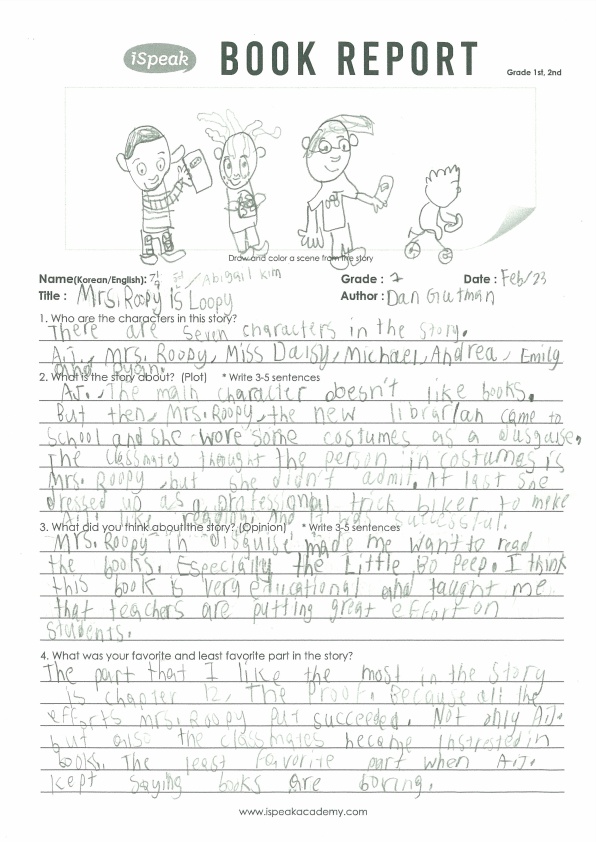 iSpeak BOOK REPORT
Grade 1st, 2nd
Draw and color a scene from the story
Name(Korean/English): / Abigail Kim Grade : 2 Date : Feb/23
Title : Mrs. Roopy is Loopy Author : Dan Gutman
1. Who are the characters in this story?
There are seven characters in the story.
A.J., Mrs. Roopy, Miss Daisy, Michael, Andrea, Emily
and Ryan.
2. What is the story about? (Plot) * Write 3-5 sentences
A.J., The main character doesn't like books.
But then, Mrs. Roopy, the new librarian came to
school and she wore some costumes as a disguise.
The classmates thought the person in costumes is
Mrs. Roopy, but she didn't admit. At last she
dressed up as a professional trick biker to make
A.J. like reading. And it was successful.
3. What did you think about the story? (Opinion) * Write 3-5 sentences
Mrs. Roopy in disguise made me want to read
the books. Especially the Little Bo Peep. I think
this book is very educational and taught me
that teachers are putting great effort on
students.
4. What was your favorite and least favorite part in the story?
The part that I like the most in the story
is chapter 12, The Proof. Because all the
efforts Mrs. Roopy put succeeded. Not only A.J.
but also the classmates become instrested in
books. The least favorite part when A.J.
kept saying books are boring.
www.ispeakacademy.com